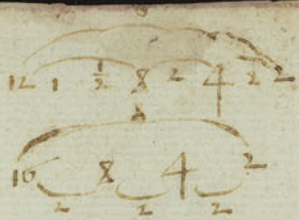 8
12 1 1/2 8 2 4 2 2
8
16 8 4 2
2 2 2